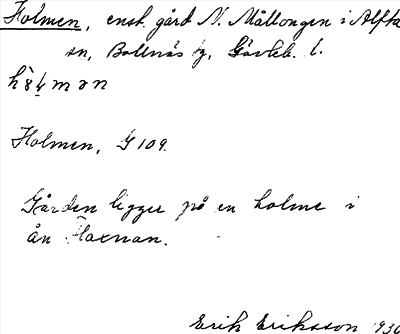 Holmen, enst. gård N. Mållongen i Alfta
sn, Bollnäs tg, Gävleb. l.
Holmen, J 109.
Gården ligger på en holme i
ån Voxnan.
Erik Eriksson 1930